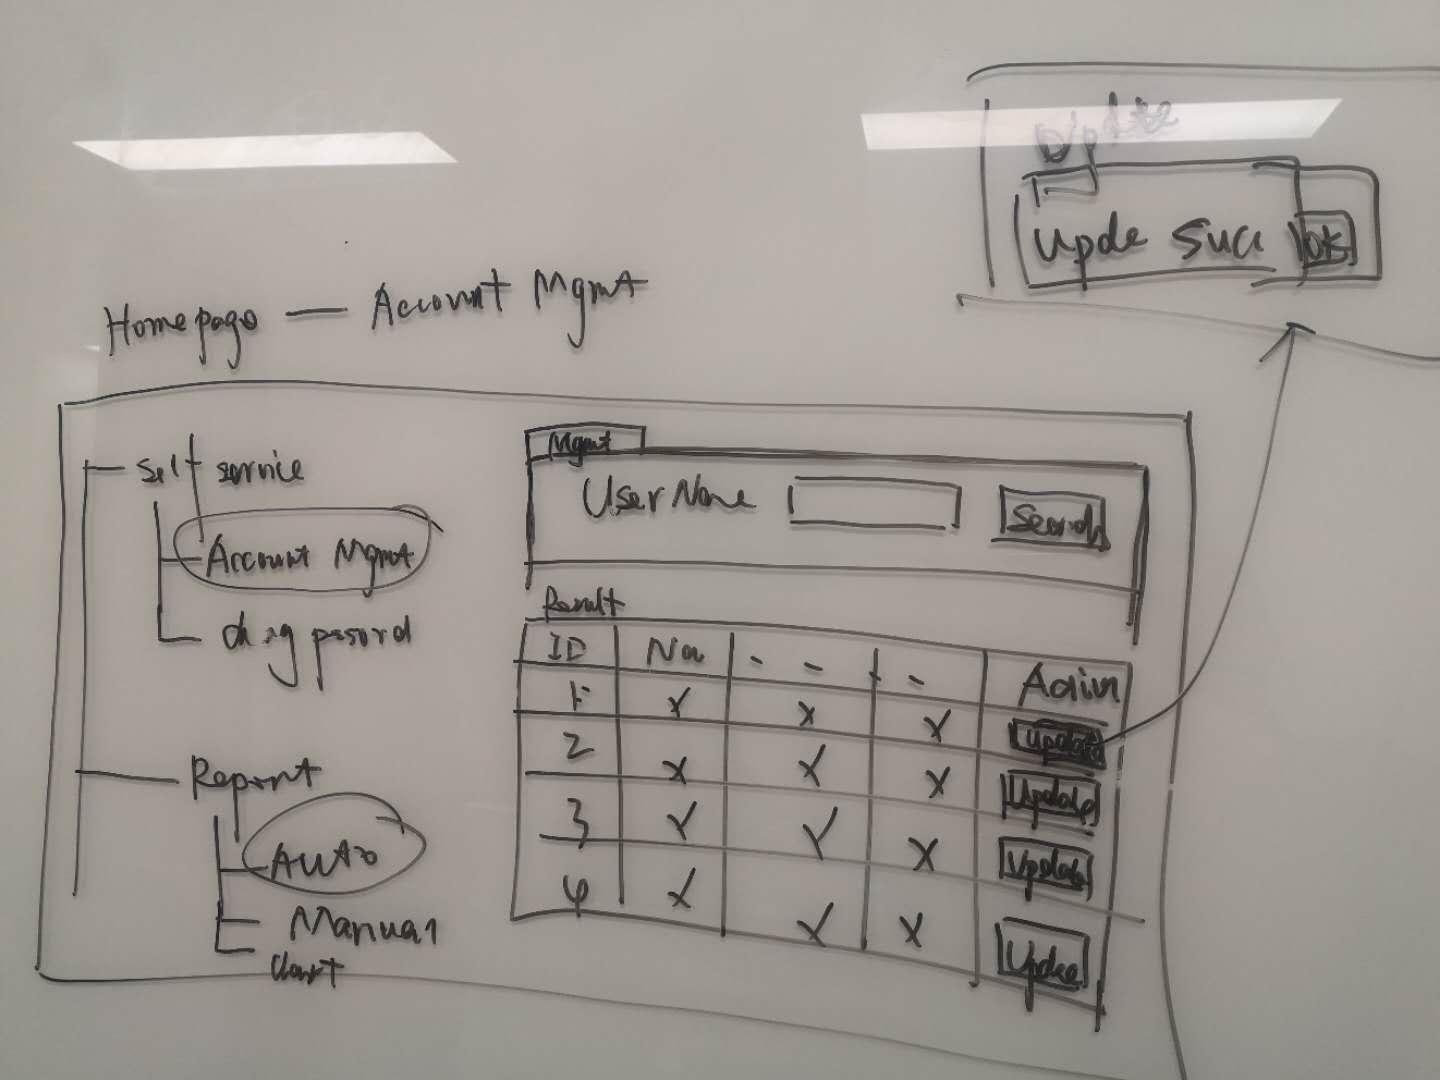 Update
Upde Succ OK
Homepage — Account Mgmt
Self service
Account Mgmt
chag pasord
Report
AUTO
Manual
Chart
Mgmt
User Name Search
Result
ID Na - - - - Action
1 x x x Update
2 x x x Update
3 x x x Update
4 x x x Update